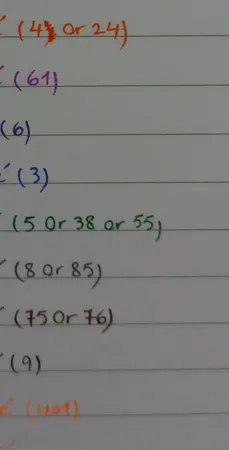 (4 or 24)
(61)
(6)
(3)
(5 Or 38 or 55)
(8 Or 85)
(75 Or 76)
(9)